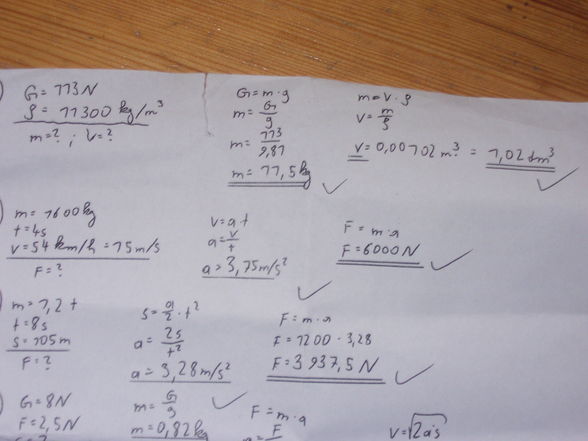 G = 113N
ρ = 11300 kg/m³
m = ? ; V = ?
G = m·g
m = G/g
m = 113/9,81
m = 11,5 kg
m = V·ρ
V = m/ρ
V = 0,00102 m³ = 1,02 dm³
m = 1600kg
t = 4s
v = 54 km/h = 15 m/s
F = ?
v = a·t
a = v/t
a = 3,75 m/s²
F = m·a
F = 6000 N
m = 1,2 t
t = 8s
s = 105m
F = ?
s = a/2 · t²
a = 2s/t²
a = 3,28 m/s²
F = m·a
F = 1200 · 3,28
F = 3937,5 N
G = 8N
F = 2,5N
m = G/g
m = 0,82kg
F = m·a
v = √2as